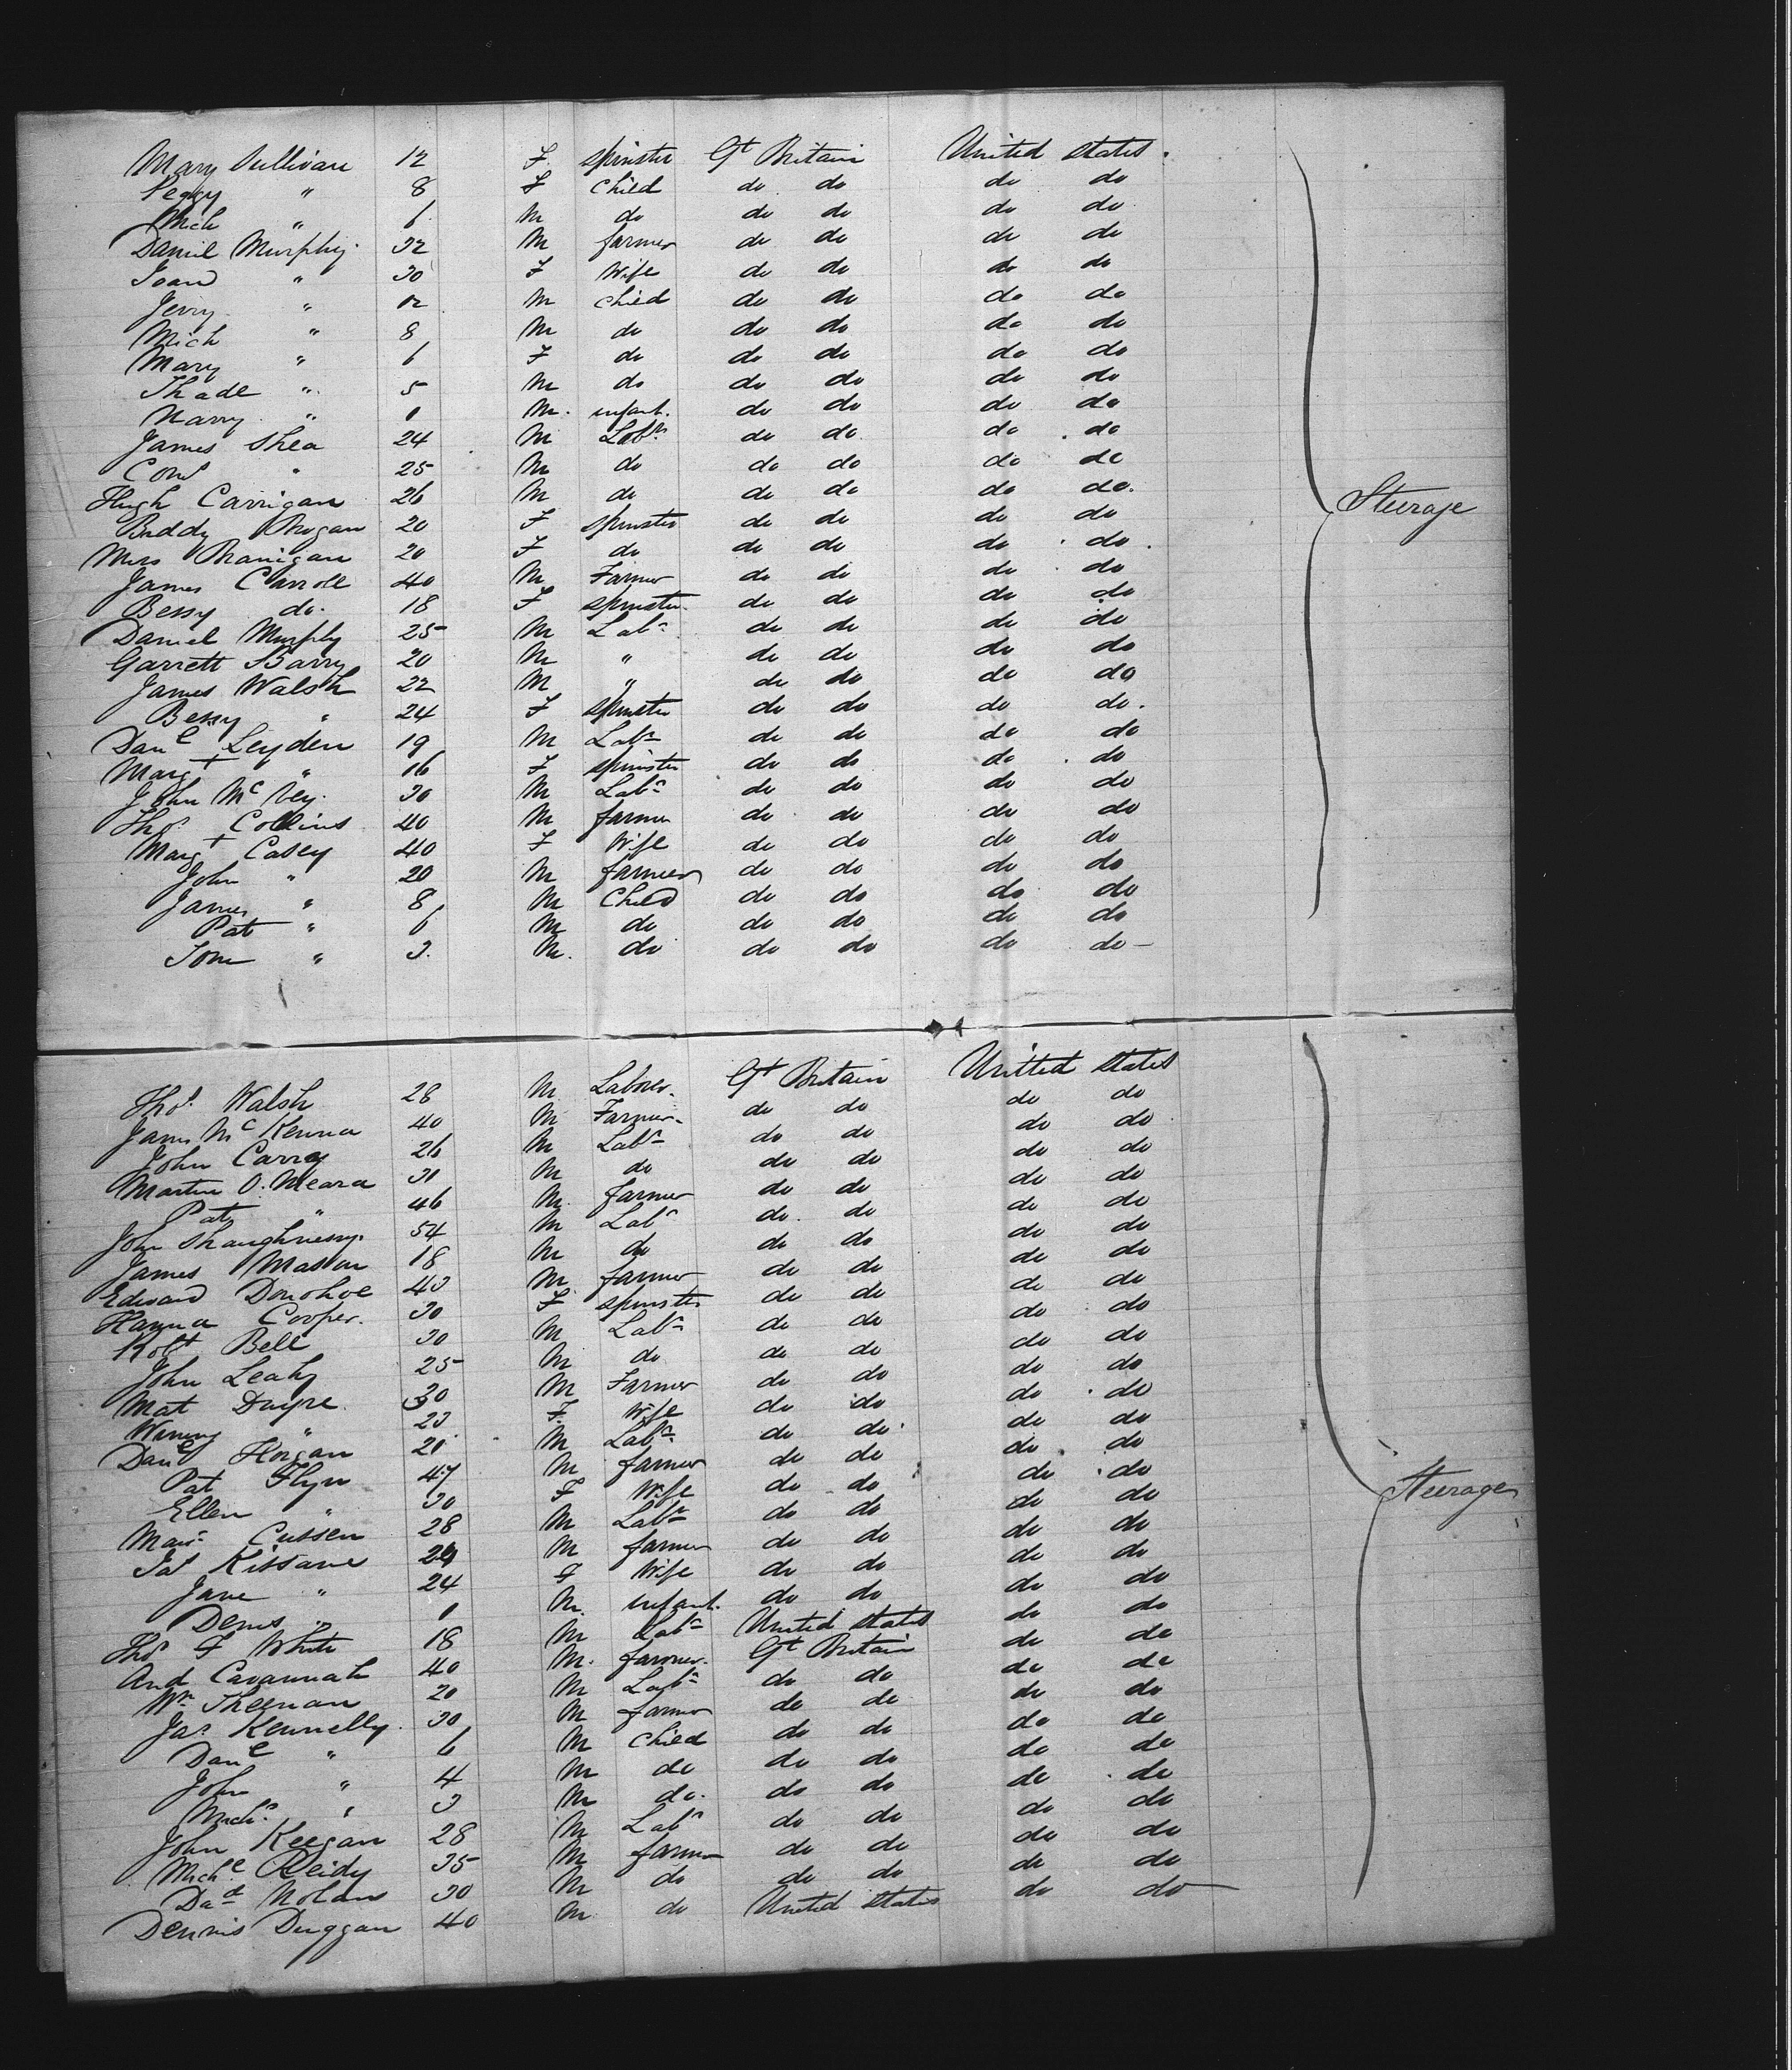 Mary Sullivan 12 F. spinster Gt Britain United states.
Peggy " 8 F child do do do do
Mich " 6 M do do do do do
Daniel Murphy 32 M farmer do do do do
Joan " 30 F Wife do do do do
Jerry " 12 M child do do do do
Mich " 8 M do do do do do
Mary " 6 F do do do do do
Thade " 5 M do do do do do
Harry " 0 M. infant. do do do do
James Shea 24 M Labr do do do do
Cons " 25 M do do do do do
Hugh Carrigan 26 M do do do do do. Steerage
Biddy Brogan 20 F spinster do do do do
Miss Branigan 20 F do do do do do.
James Carroll 40 M Farmer do do do do
Bessy do. 18 F spinster do do do do
Daniel Murphy 25 M Labr do do do do
Garrett Barry 20 M " do do do do
James Walsh 22 M " do do do do
Bessy " 24 F spinster do do do do.
Danl Leyden 19 M Labr do do do do
Margt " 16 F spinster do do do do
John Mc 30 M Labr do do do do
Thos. Collins 40 M farmer do do do do
Margt Casey 40 F Wife do do do do
John " 20 M farmer do do do do
James " 8 M Child do do do do
Pat " 6 M do do do do do
Tom " 3. M. do do do do do —
Thos. Walsh 28 M Laborer. Gt Britain United states
James McKenna 40 M Farmer do do do do
John Carry 26 M Labr do do do do
Martin O.Meara 30 M do do do do do
Pat " 46 M. farmer do do do do
John Shaughnessy. 54 M Labr do. do do do
James Maslow 18 M do do do do do
Edward Donohoe 43 M farmer do do do do
Hanna Cooper. 30 F spinster do do do do
Robt Bell 30 M Labr do do do do
John Leahy 25 M do do do do do
Mat Dwyre 30 M Farmer do do do do
Winny " 23 F. Wife do do do do
Danl Horgan 20 M Labr do do do do
Pat Flyn 47 M farmer do do do do
Ellen " 30 F Wife do do do do Steerage
Maur. Cussen 28 M Labr do do do do
Pat Kissane 29 M farmer do do do do
Jane " 24 F Wife do do do do
Denis " 0 M. infant. do do do do
Thos F White 18 M Labr United states do do
And Cavannah 40 M. farmer. Gt Britain do do
Wm Sheenan 20 M Labr do do do do
Jas. Kennelly. 30 M farmer do do do do
Danl " 6 M child do do do do
John " 4 M do do do do do
Michl " 3 M do. do do do do
John Keegan 28 M Labr do do do do
Michl Reidy 35 M farmer do do do do
Dad Nolan 30 M do do do do do
Dennis Duggan 40 M. do United states do do